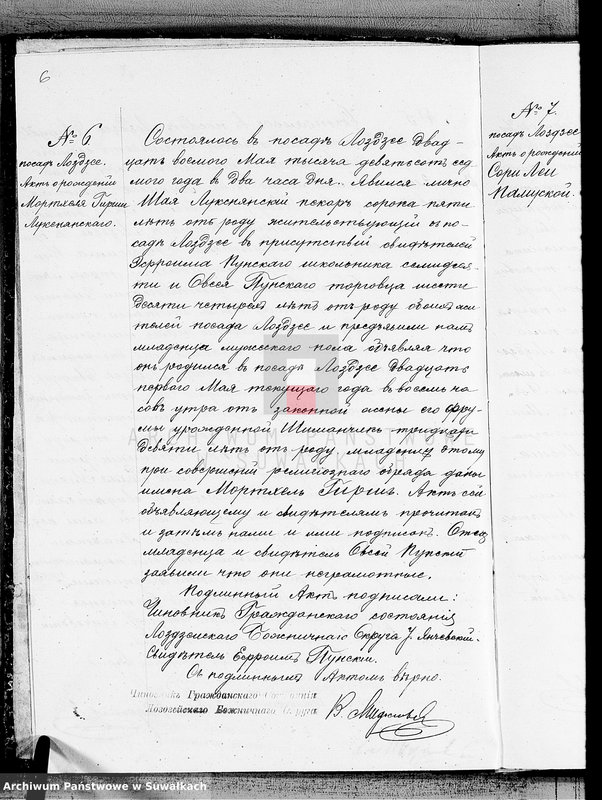 6
№ 6
посадъ Лоздзее.
Актъ о рожденiи
Мортхеля Гирши
Лукснянскаго.
Состоялось въ посадѣ Лоздзее двад-
цать восьмого Мая тысяча девятьсотъ седь-
мого года въ два часа дня. Явился лично
Шая Лукснянскiй пекарь сорока пяти
лѣтъ отъ роду жительствующiй въ по-
садѣ Лоздзее въ присутствiи свидѣтелей
Эфроима Пунскаго школьника семидеся-
ти и Овсея Пунскаго торговца шести
десяти четырехъ лѣтъ отъ роду обоихъ жи
телей посада Лоздзее и предъявилъ намъ
младенца мужескаго пола объявляя что
онъ родился въ посадѣ Лоздзее двадцать
перваго Мая текущаго года въ восемь ча-
совъ утра отъ законной жены его Фру-
мы урожденной Шиманчикъ тридцати
девяти лѣтъ отъ роду, младенцу этому
при совершенiи религiознаго обряда даны
имена Мортхель Гиршъ. Актъ сей
объявляющему и свидѣтелямъ прочитанъ
и затѣмъ нами и ими подписанъ. Отецъ
младенца и свидѣтель Овсей Пунскiй
заявили что они неграмотные.
Подлинный Актъ подписали:
Чиновникъ Гражданскаго состоянiя
Лоздзейскаго Божничнаго Округа
Свидѣтель Ефроимъ Пунскiй.
Съ подлиннымъ Актомъ вѣрно.
Чиновникъ Гражданскаго Состоянiя
Лоздзейскаго Божничнаго Округа
№ 7.
посадъ Лоздзее
Актъ о рожденiи
Сори Леи
ARCHIWUM PAŃSTWOWE
W SUWAŁKACH
Archiwum Państwowe w Suwałkach